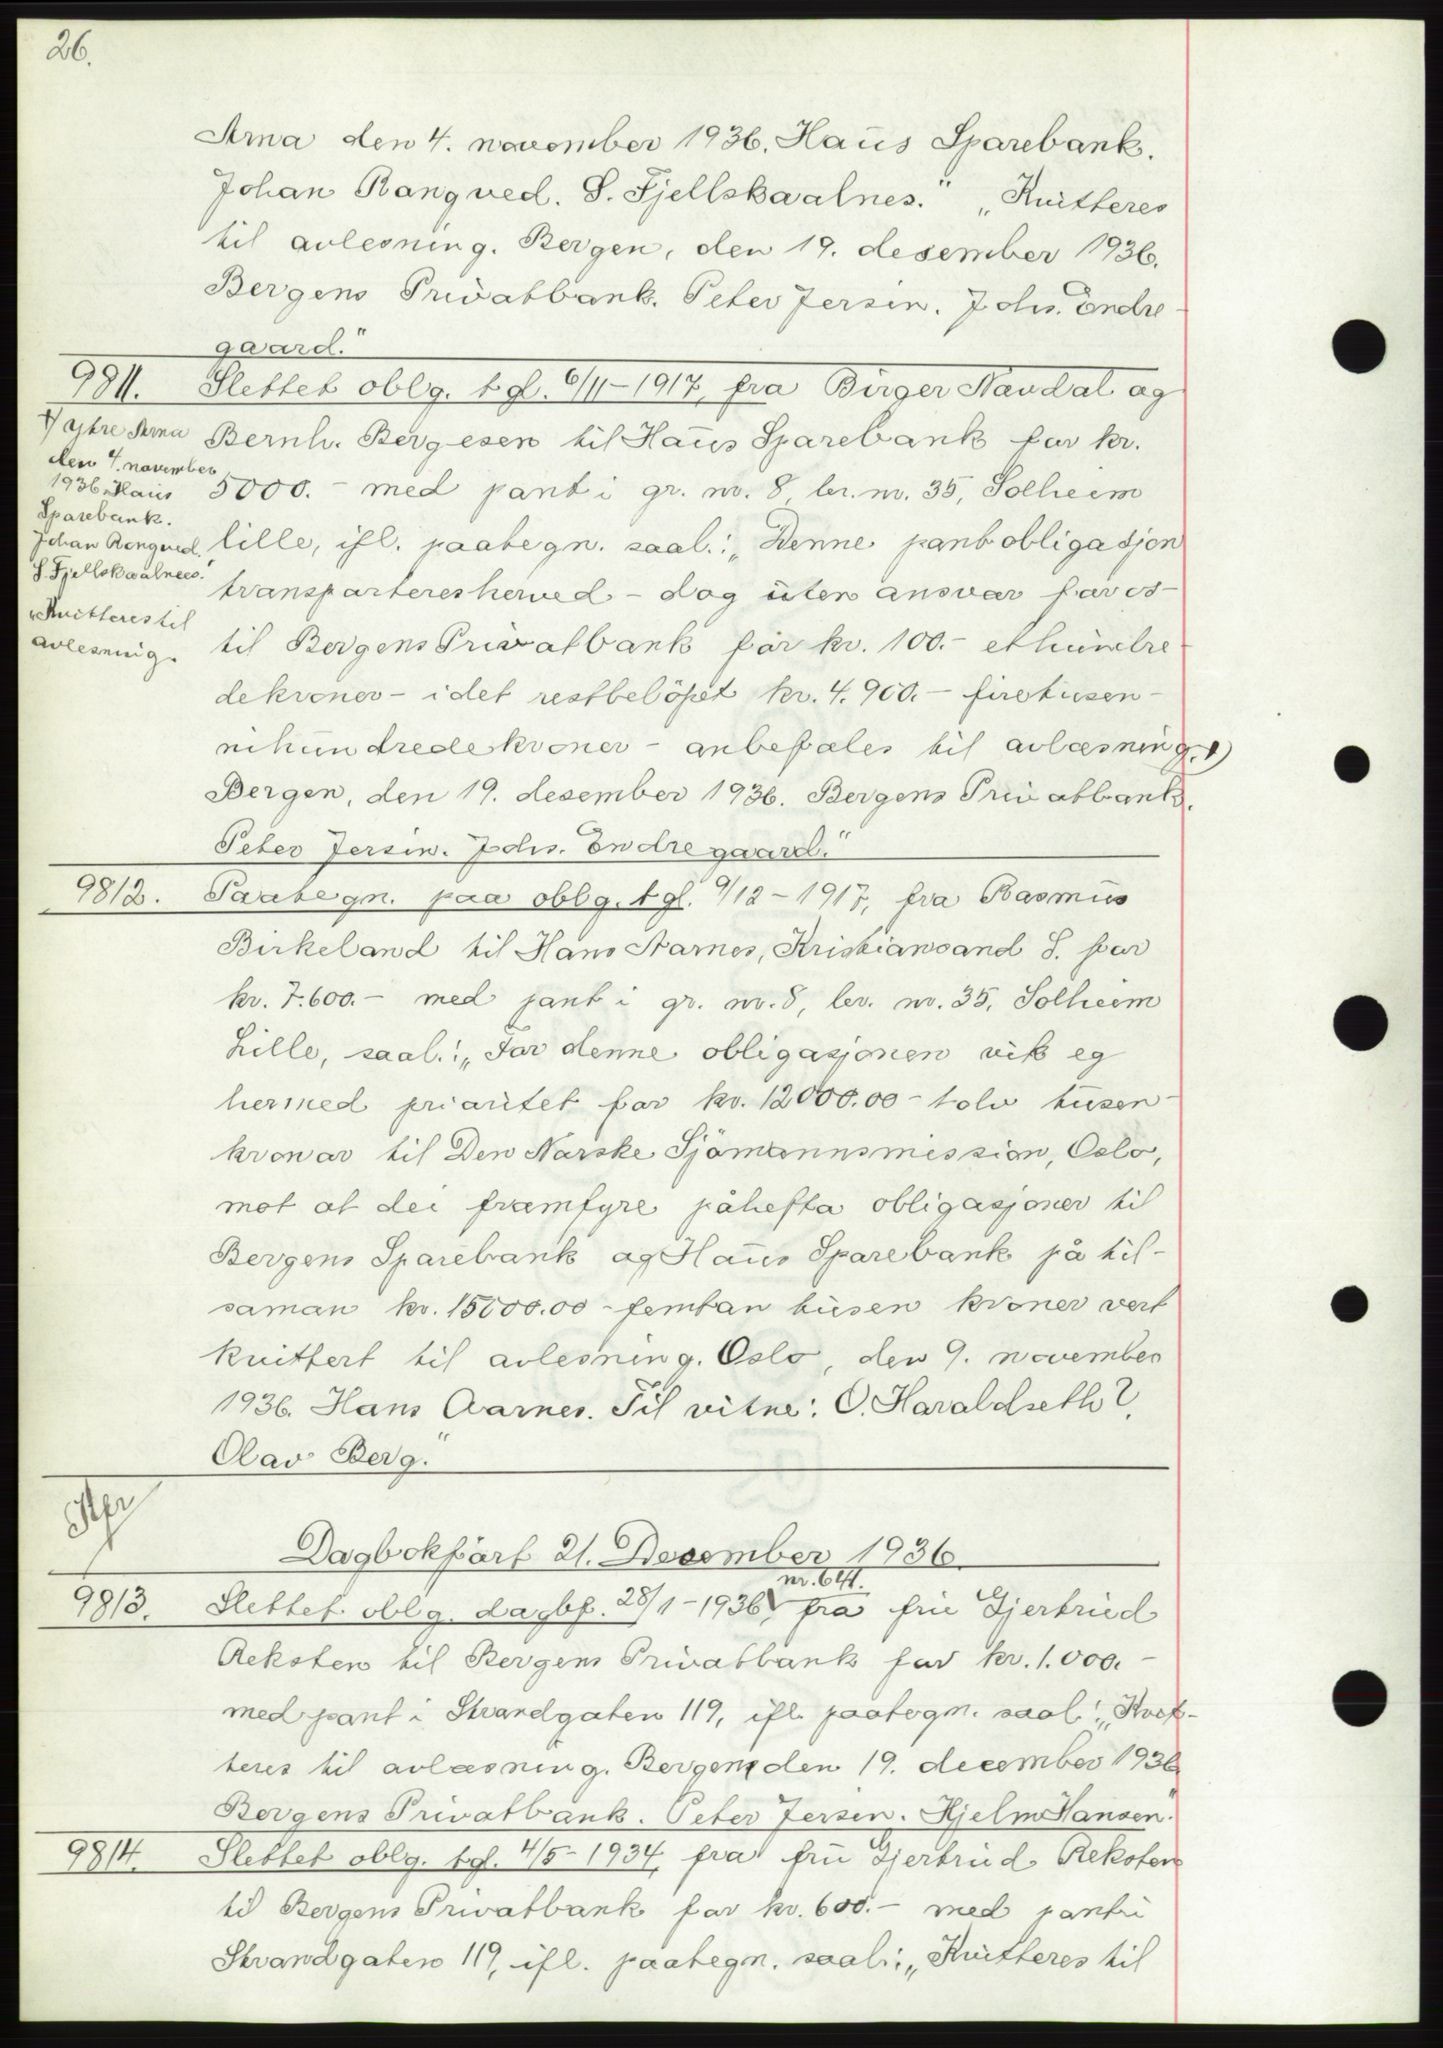 26.
Arna den 4. november 1936. Haus Sparebank.
Johan Rongved. S. Fjellskaalnes." „Kvitteres
til avlesning. Bergen, den 19. desember 1936.
Bergens Privatbank. Peter Jersin. Johs. Endre-
gaard."
9811. Slettet oblg. tgl. 6/11-1917, fra Birger Navdal og
Bernh. Bergesen til Haus Sparebank for kr.
5000.- med pant i gr. nr. 8, br. nr. 35, Solheim
lille, ifl. paategn. saal.: „Denne pantobligasjon
transporteres herved - dog uten ansvar for os -
til Bergens Privatbank for kr. 100.- ethundre-
dekroner - idet restbelöpet kr. 4.900.- firetusen-
nihundredekroner - anbefales til avlæsning. 1)
Bergen, den 19. desember 1936. Bergens Privatbank.
Peter Jersin. Johs. Endregaard."
1) Ytre Arna
den 4. november
1936. Haus
Sparebank.
Johan Rongved.
S. Fjellskaalnes."
„Kvitteres til
avlesning.
9812. Paategn. paa oblg. tgl. 9/12-1917, fra Rasmus
Birkeland til Hans Aarnes, Kristiansand S. for
kr. 7.600.- med pant i gr. nr. 8, br. nr. 35, Solheim
Lille, saal.: „For denne obligasjonen vik eg
hermed prioritet for kr. 12000.00 - tolv tusen -
kronor til Den Norske Sjömannsmission, Oslo,
mot at dei framfyre påhefta obligasjoner til
Bergens Sparebank og Haus Sparebank på til-
saman kr. 15000.00 - femtan tusen kroner vert
kvittert til avlesning. Oslo, den 9. november
1936. Hans Aarnes. Til vitne: O. Haraldseth?,
Olav Berg."
Dagbokfört 21. Desember 1936.
nr. 641.
9813. Slettet oblg. dagbf. 28/1-1936, fra fru Gjertrud
Reksten til Bergens Privatbank for kr. 1.000.-
med pant i Strandgaten 119, ifl. paategn. saal.: „Kvit-
teres til avlæsning. Bergen, den 19. december 1936
Bergens Privatbank. Peter Jersin. Hjelm Hansen."
9814. Slettet oblg. tgl. 4/5-1934, fra fru Gjertrud Reksten
til Bergens Privatbank for kr. 600.- med pant i
Strandgaten 119, ifl. paategn. saal.: „Kvitteres til